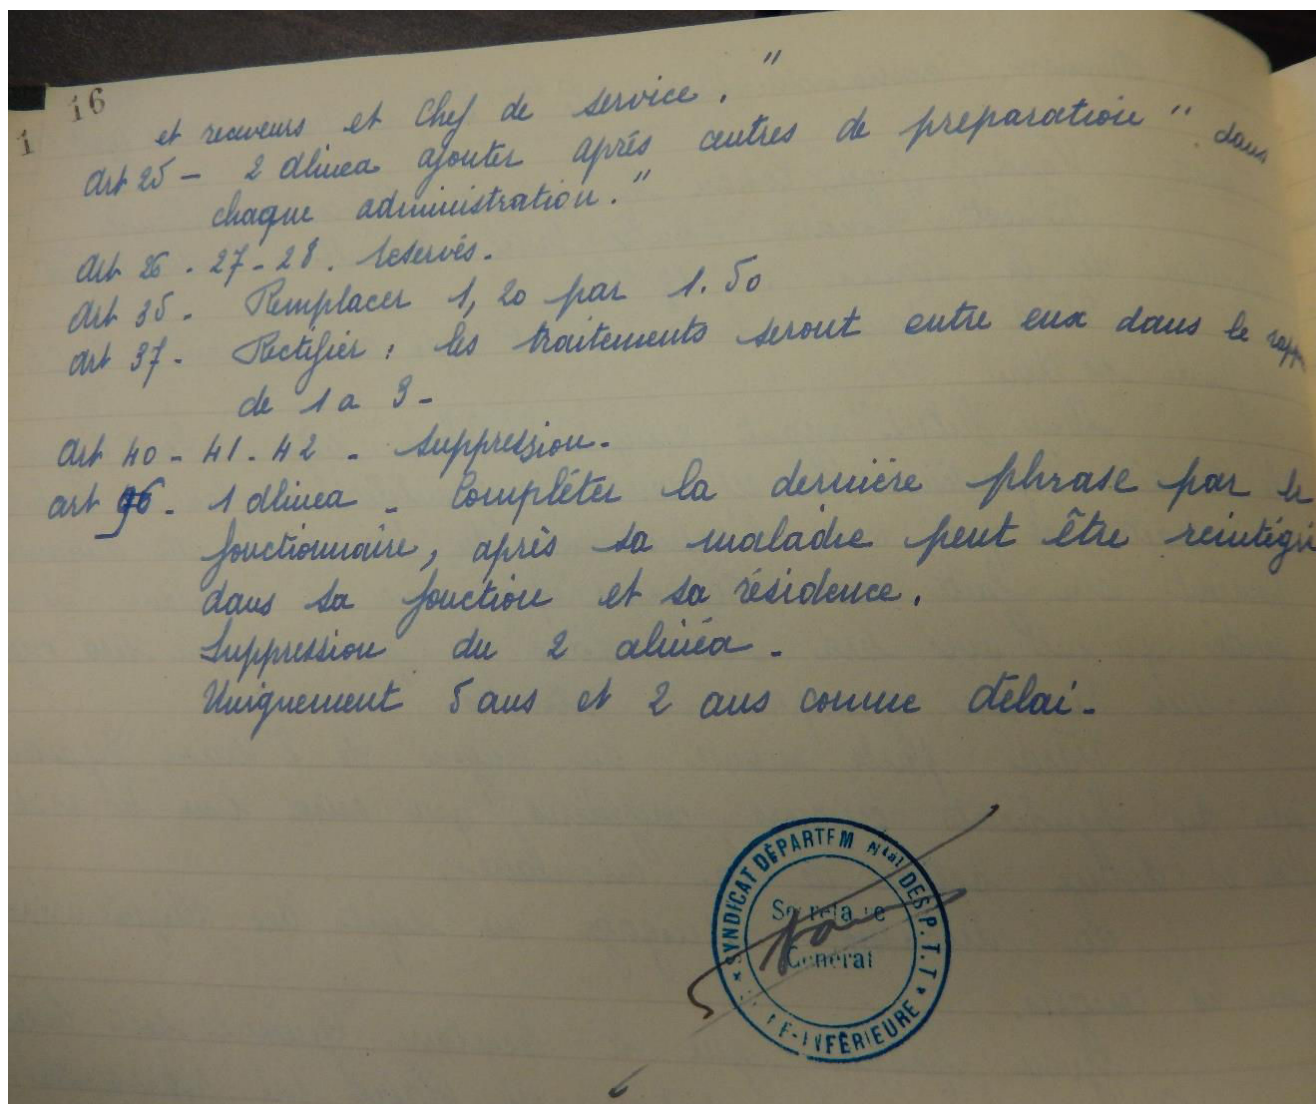 16
1
et receveurs et Chef de service. "
Art 25 - 2 alinea ajouter après centres de preparation " dans
chaque administration. "
Art 26 - 27 - 28. reservés.
Art 35 - Remplacer 1,20 par 1.50
Art 37 - Rectifier : les traitements seront entre eux dans le
de 1 a 3 -
Art 40 - 41 - 42 - Suppression.
art - 1 alinea - Compléter la dernière phrase par le
fonctionnaire, après sa maladie peut être reintégré
dans sa fonction et sa résidence.
Suppression du 2 alinéa -
Uniquement 5 ans et 2 ans comme délai -
* SYNDICAT DÉPARTEM Ntal DES P.T.T *
Secretaire
Général
INFÉRIEURE